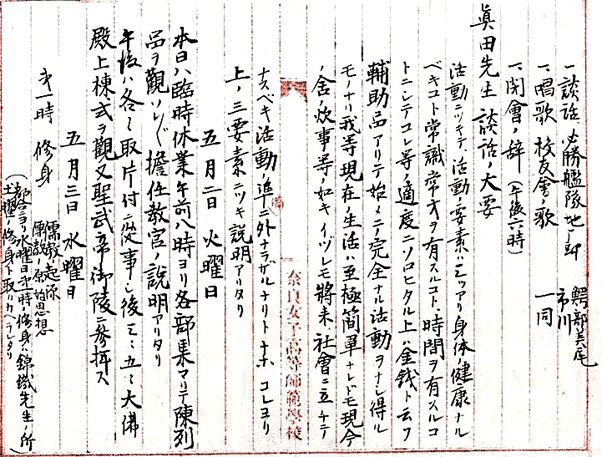 一、談話 必勝艦隊地了卸 鰐部美尾
一、唱歌 校友會ノ歌 市川 一同
一、閉會ノ辞(午後六時)
眞田先生 談話ノ大要
活動ニツキテ、活動ノ要素ハ三ツアリ身体ノ健康ナル
ベキコト常識常才ヲ有スルコト時間ヲ有スルコ
トニシテコレ等ノ適度ニソロヒタル上ハ金銭ト云フ
輔助品アリテ始メテ完全ナル活動ヲナシ得ル
モノナリ我等現在ノ生活ハ至極簡單ナレドモ現今
ノ舎ノ炊事等ノ如キイヅレモ將来社會ニ立チテ
奈良女子高等師範學校
ナスベキ活動ノ準備ニ外ナラザルナリトナホコレヨリ
上ノ三要素ニツキ説明アリタリ
五月二日 火曜日
本日ハ臨時休業午前八時ヨリ各部集マリテ陳列
品ヲ觀ソレゾレ擔任教官ノ説明アリタリ
午後ハ各々取片付ニ從事シ後三々五々大佛
殿上棟式ヲ觀又聖武帝御陵ニ參拝ス
五月三日 水曜日
第一時 修身 儒教ノ起源
佛教ノ原始思想
(都合ニヨリ水曜日第一時修身ハ錦織先生ノ所
土曜ノ修身ト取リカヘラレタリ)